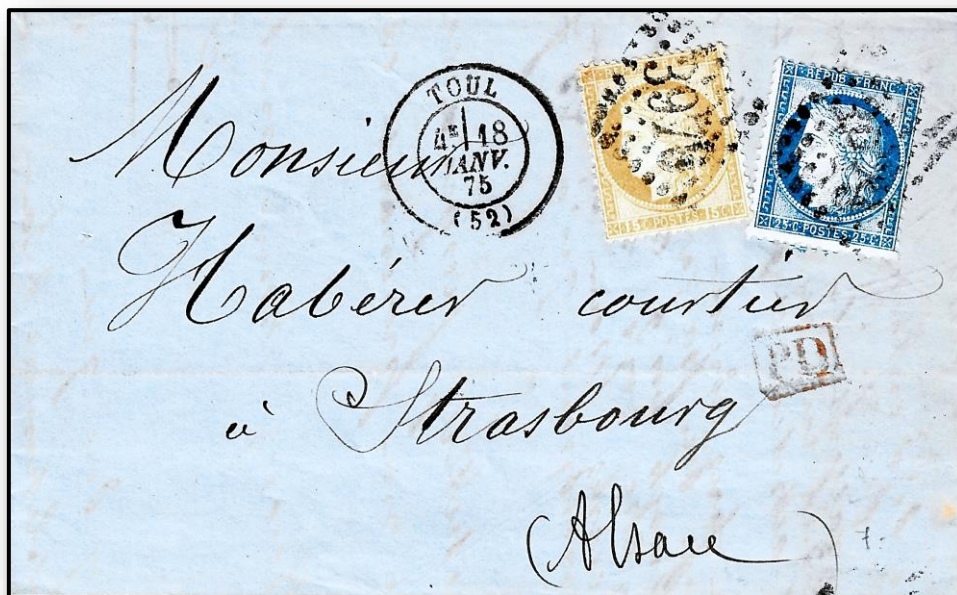 TOUL
4E 18
JANV.
75
(52)
15C POSTES 15C
REPUB FRANC
25C POSTES 25C
Monsieur
Habérer courtier
PD
à Strasbourg
(Alsace)